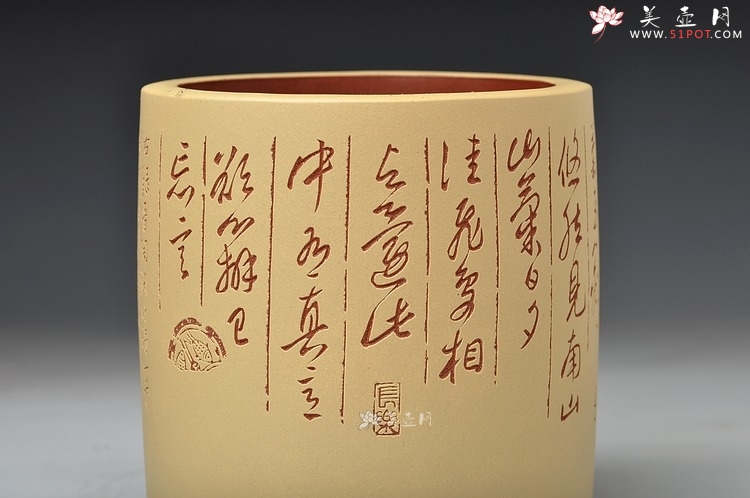 美壶网
WWW.51POT.COM
悠然見南山
山氣日夕
佳飛鳥相
与還此
中有真意
欲辨已
忘言
長樂
美壶网